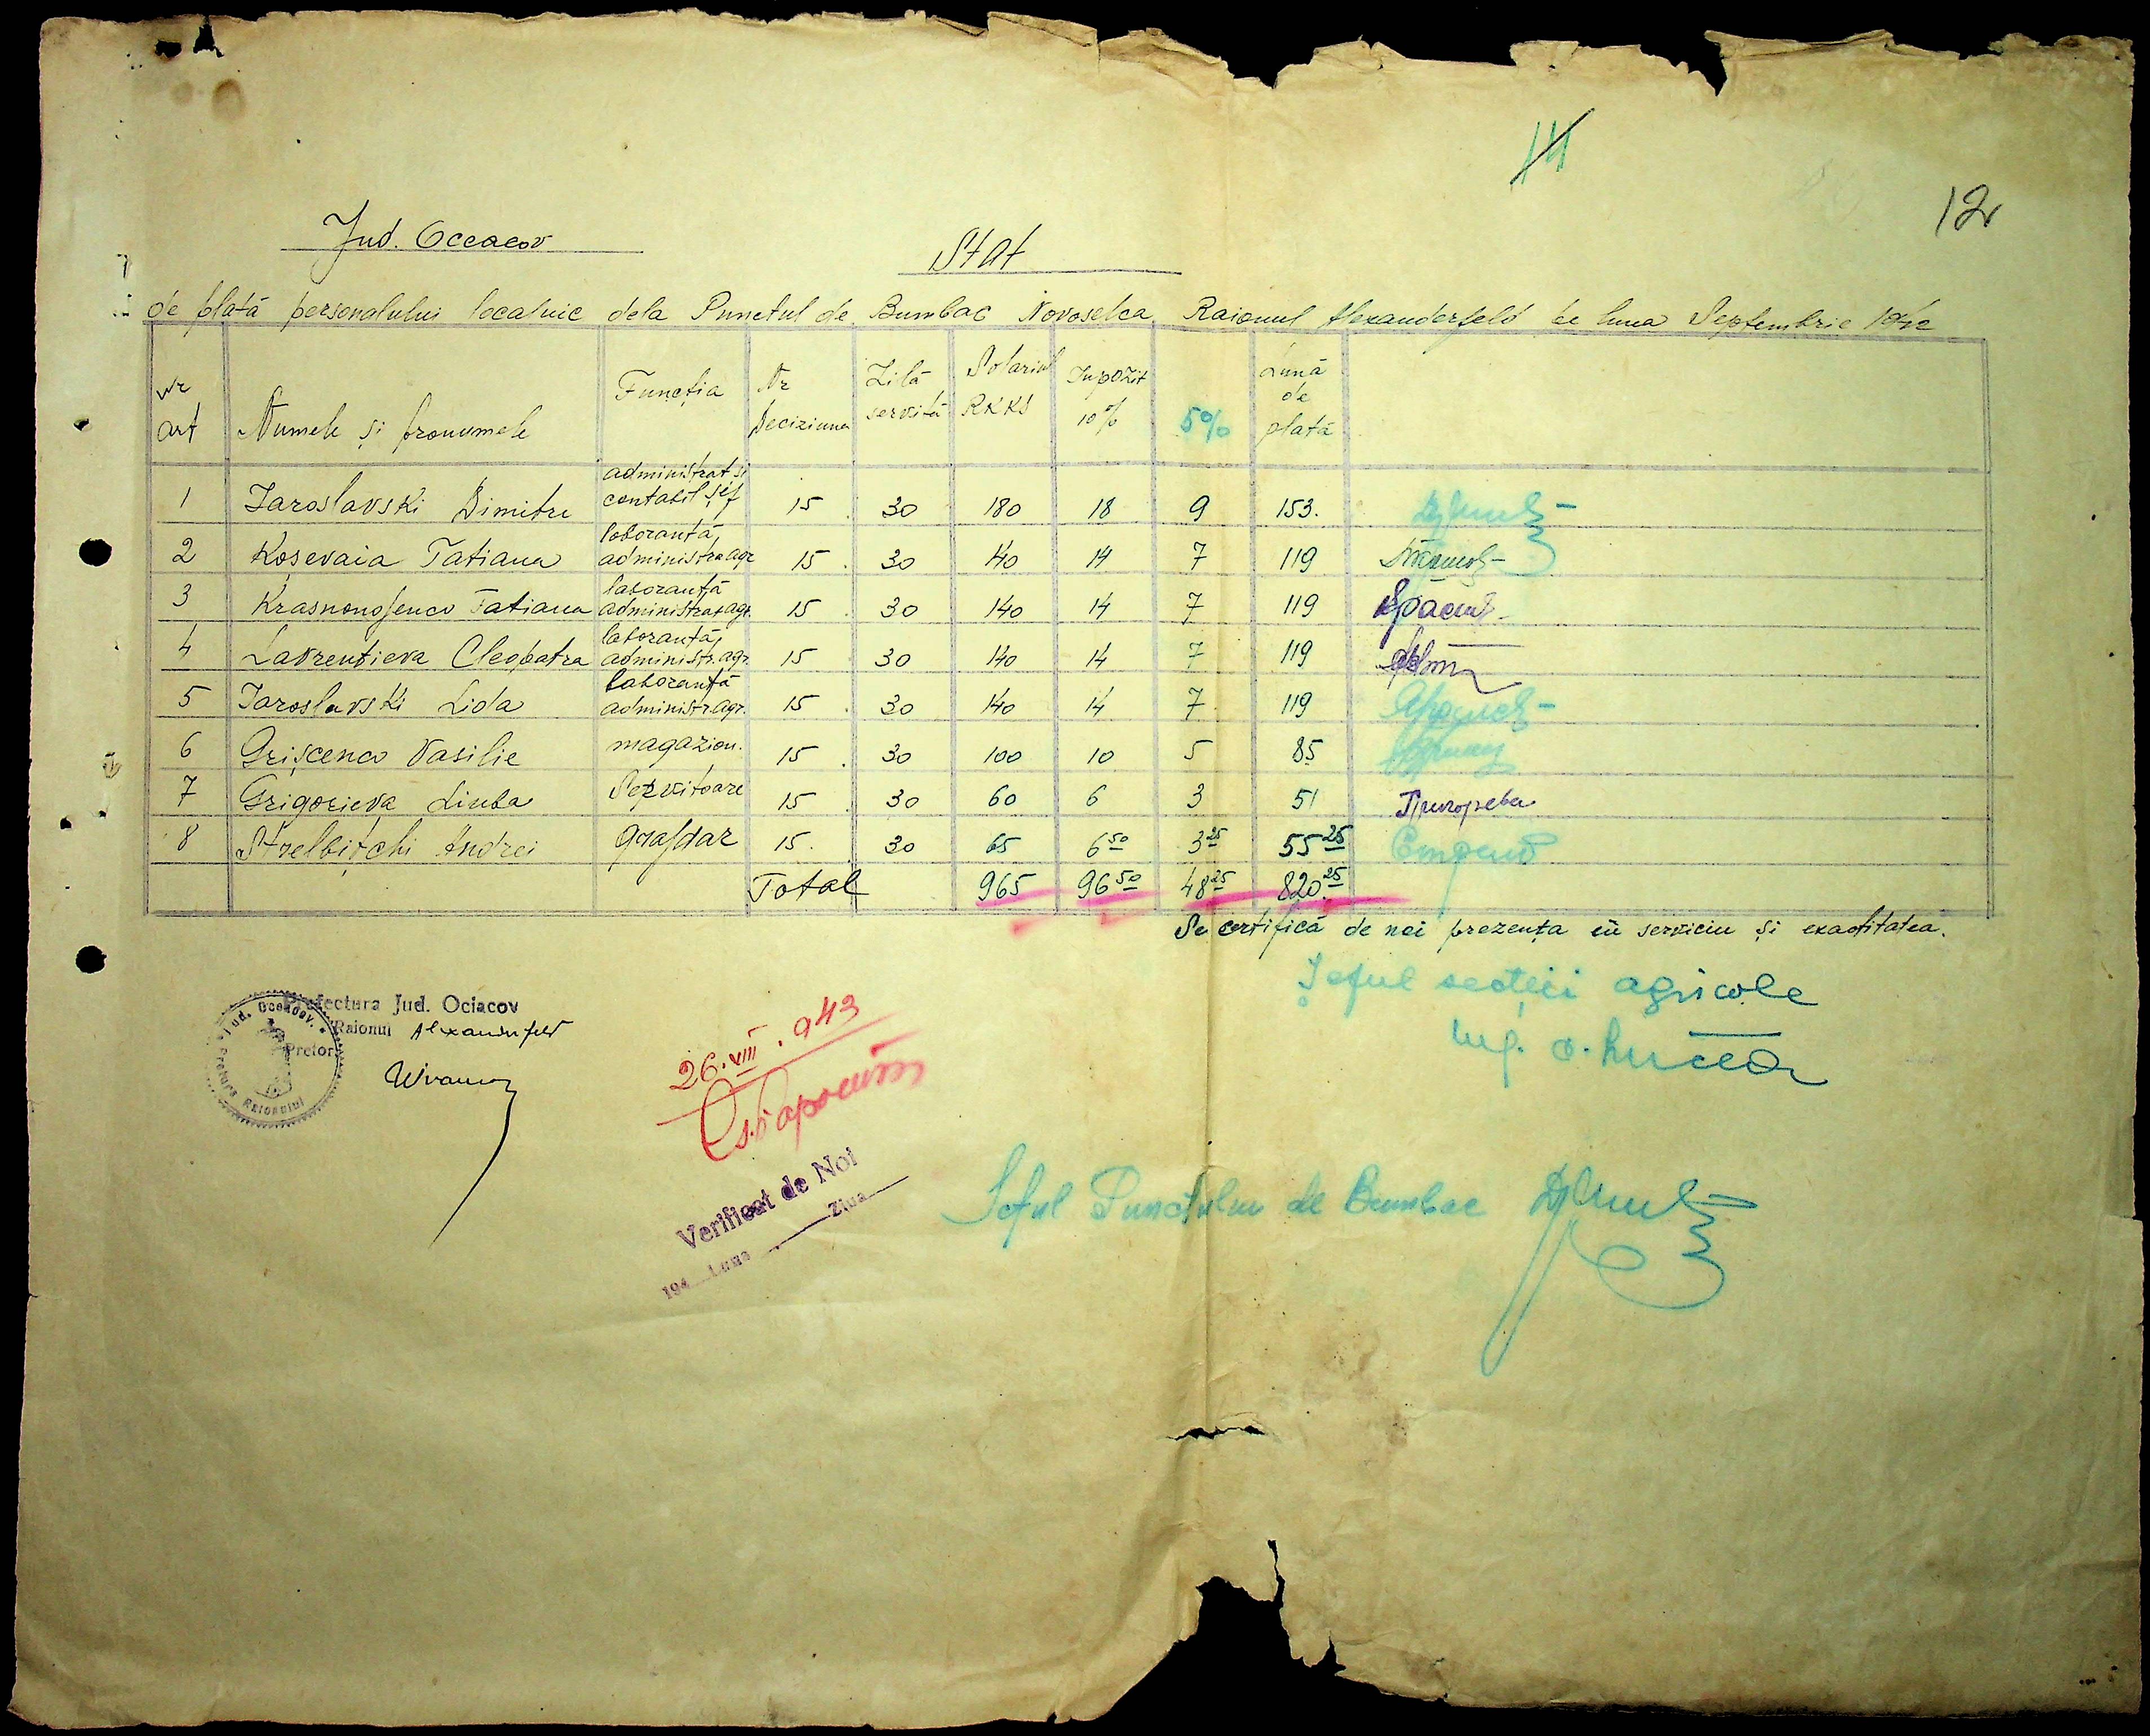 14
12
Jud. Oceacov
Stat
de plată personalului localnic dela Punctul de Bumbac Novoselca Raionul Alexanderfeld pe luna Septembrie 1942
Nr art | Numele și pronumele | Funcția | Nr Deciziunei | Zilă servită | Solariul RKKS | Inpozit 10% | 5% | Lună de plată
1 | Iaroslavski Dimitre | administrat și contabil șef | 15 | 30 | 180 | 18 | 9 | 153.
2 | Kosevaia Tatiana | loborantă administra agr | 15 | 30 | 140 | 14 | 7 | 119
3 | Krasnonosenco Tatiana | laborantă administrat agr. | 15 | 30 | 140 | 14 | 7 | 119
4 | Lavrentieva Cleopatra | laborantă administr. agr. | 15 | 30 | 140 | 14 | 7 | 119
5 | Iaroslavski Lida | laborantă administr. agr. | 15 | 30 | 140 | 14 | 7 | 119
6 | Grișcenco Vasilie | magazion. | 15 | 30 | 100 | 10 | 5 | 85
7 | Grigorieva Liuba | Servitoare | 15 | 30 | 60 | 6 | 3 | 51 | Григорева
8 | Strelbițchi Andrei | grajdar | 15. | 30 | 65 | 6 50 | 3 25 | 55 25
Total | 965 | 96 50 | 48 25 | 820. 25
Se certifică de noi prezența în serviciu și exactitatea.
Șeful secției agricole
Ing.
Prefectura Jud. Ociacov
Raionul Alexanderfeld
Pretor
Jud. Oceacov. * Pretura Raionului
26.VIII.943
Verificat de Noi
194 Luna Ziua
Șeful Punctului de Bumbac